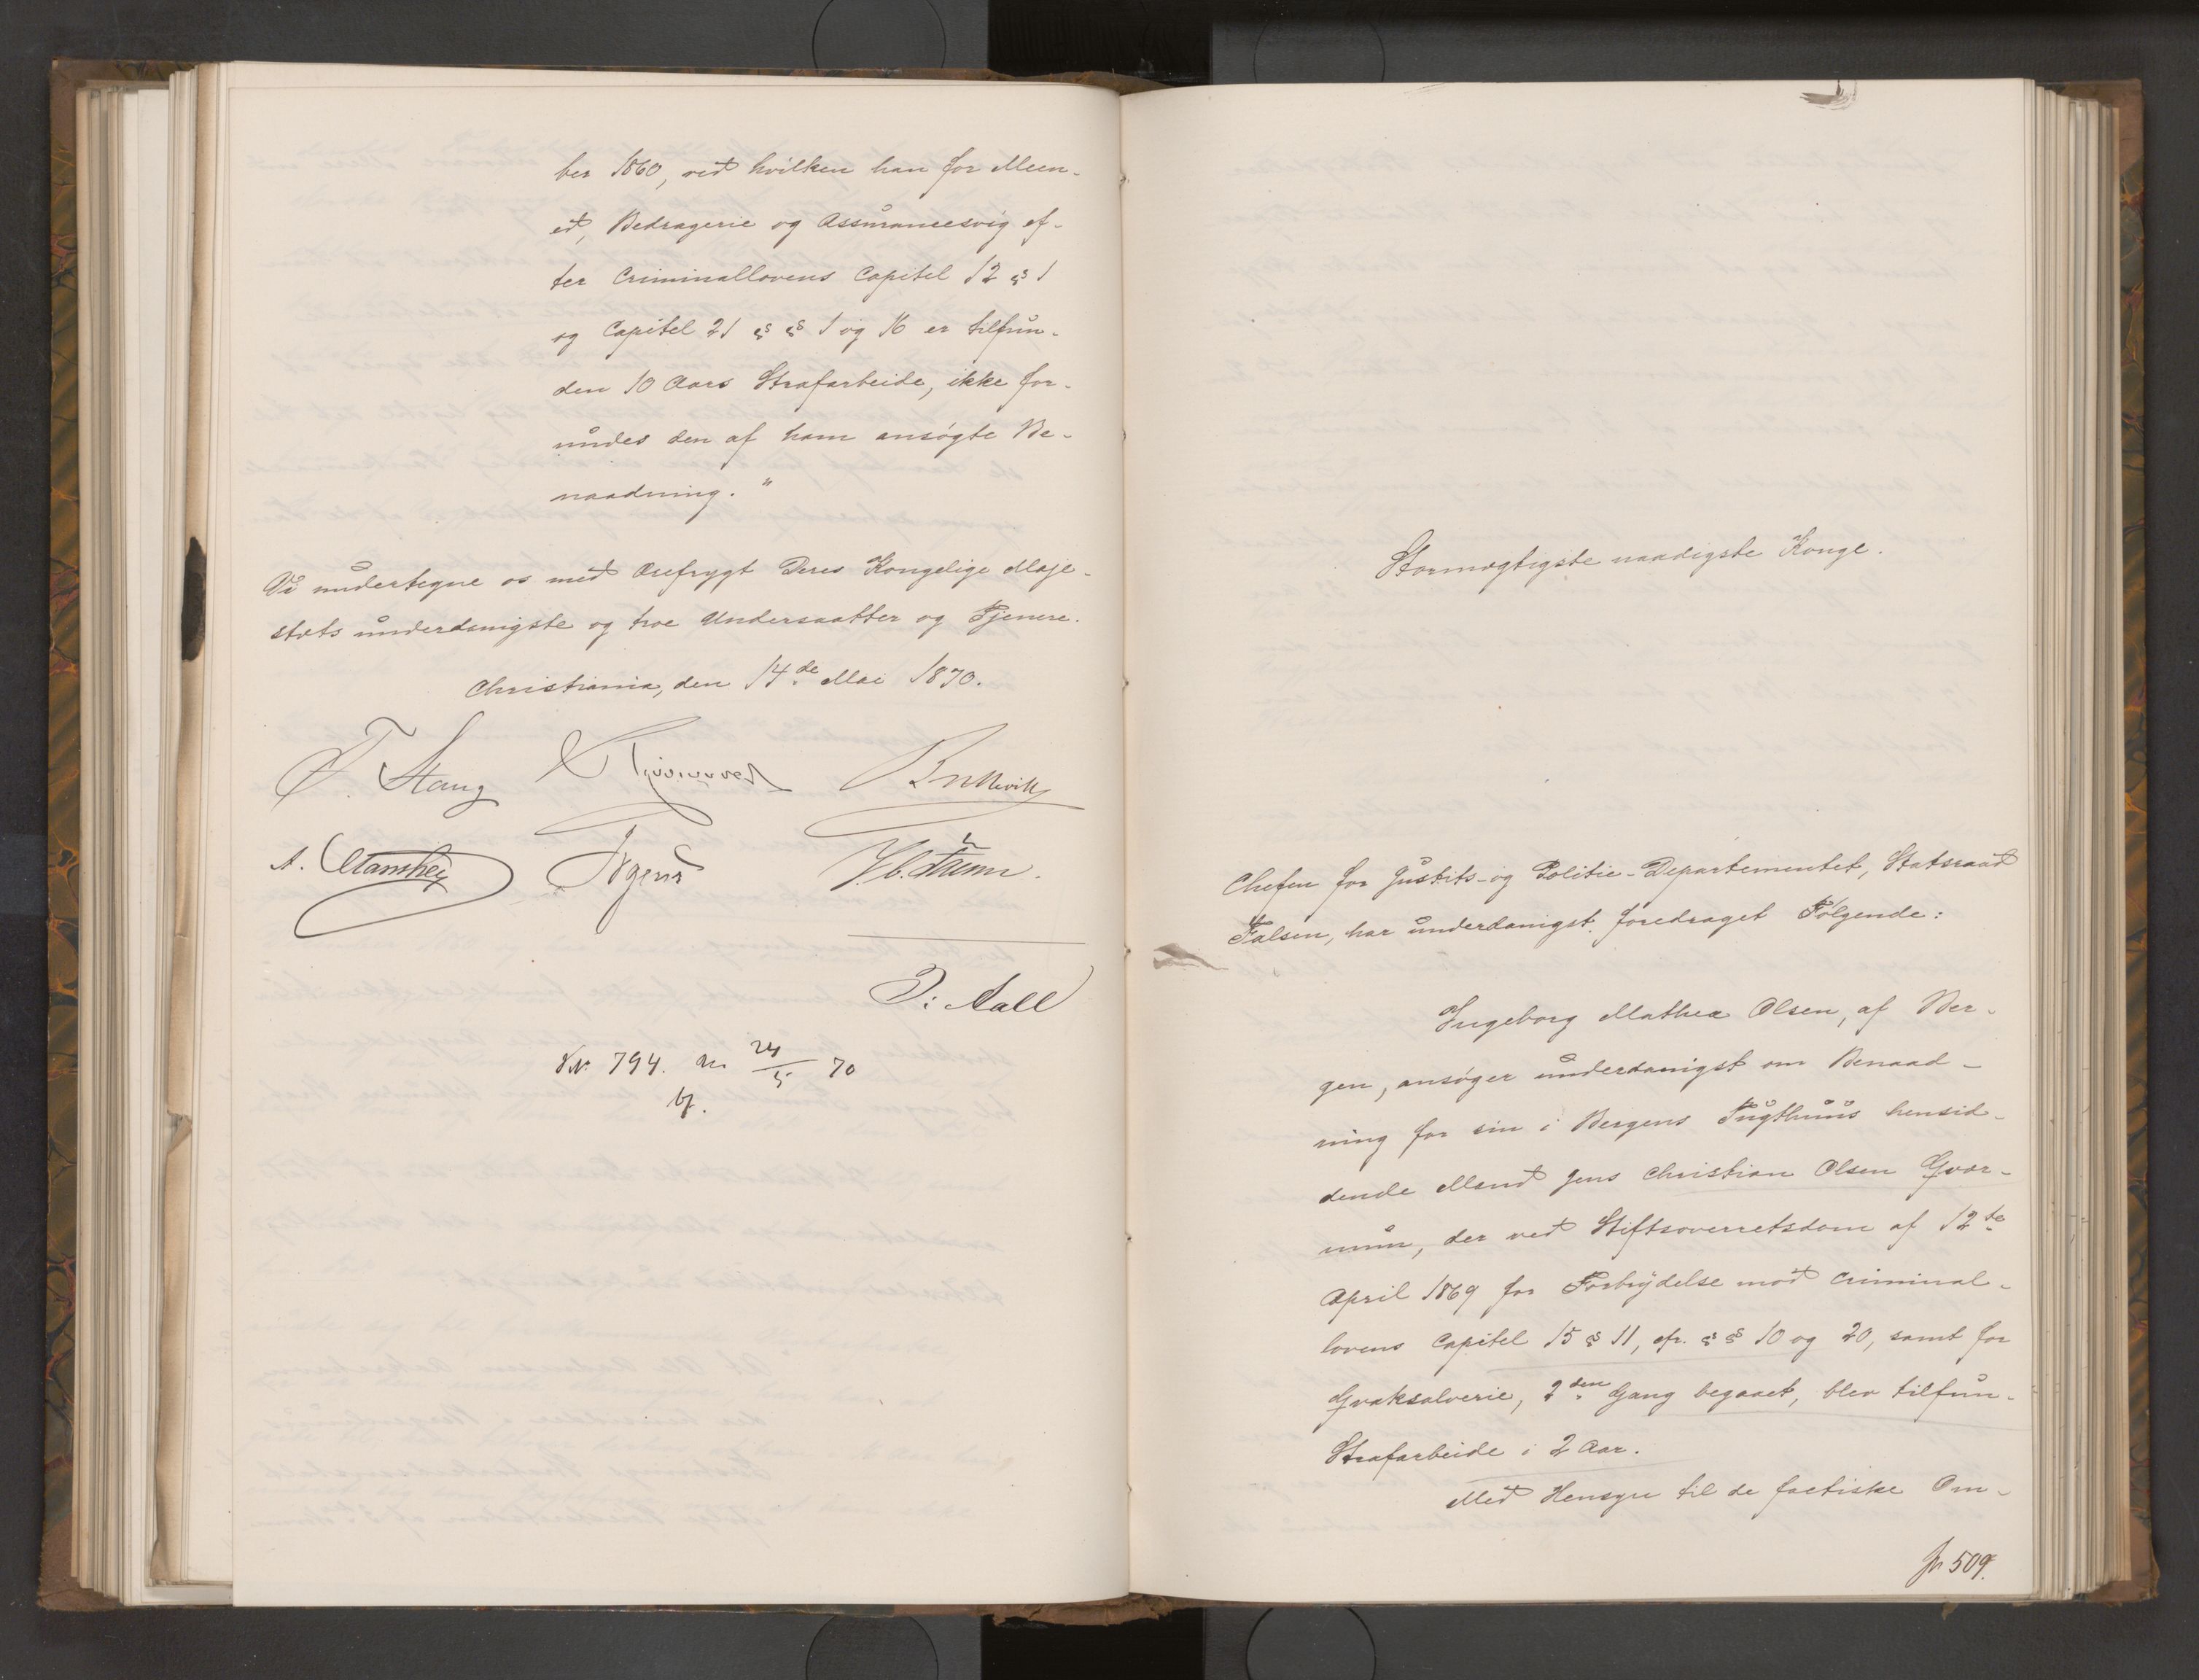 ber 1860, ved hvilken han for Meen-
ed, Bedragerie og Assurancesvig ef-
ter Criminallovens Capitel 12 § 1
og Capitel 21 § § 1 og 16 er tilfun-
den 10 Aars Strafarbeide, ikke for-
undes den af ham ansøgte Be-
naadning."
Vi undertegne os med Ærefrygt Deres Kongelige Maje-
stæts underdanigste og troe Undersaatter og Tjenere.
Christiania, den 14de Mai 1870.
F. Stang
A.
O: Aall
VN: 794. 24/5 70
Stormægtigste naadigste Konge.
Chefen for Justits- og Politie-Departementet, Statsraad
Falsen, har underdanigst foredraget Følgende:
Ingeborg Mathea Olsen, af Ber-
gen, ansøger underdanigst om Benaad-
ning for sin i Bergens Tugthuus hensid-
dende Mand Jens Christian Olsen Qvar-
mun, der ved Stiftsoverretsdom af 12te
April 1869 for Forbrydelse mod Criminal-
lovens Capitel 15 § 11, cfr. § § 10 og 20, samt for
Qvaksalverie, 2den Gang begaaet, blev tilfun-
Strafarbeide i 2 Aar.
Med Hensyn til de factiske Om-
509.